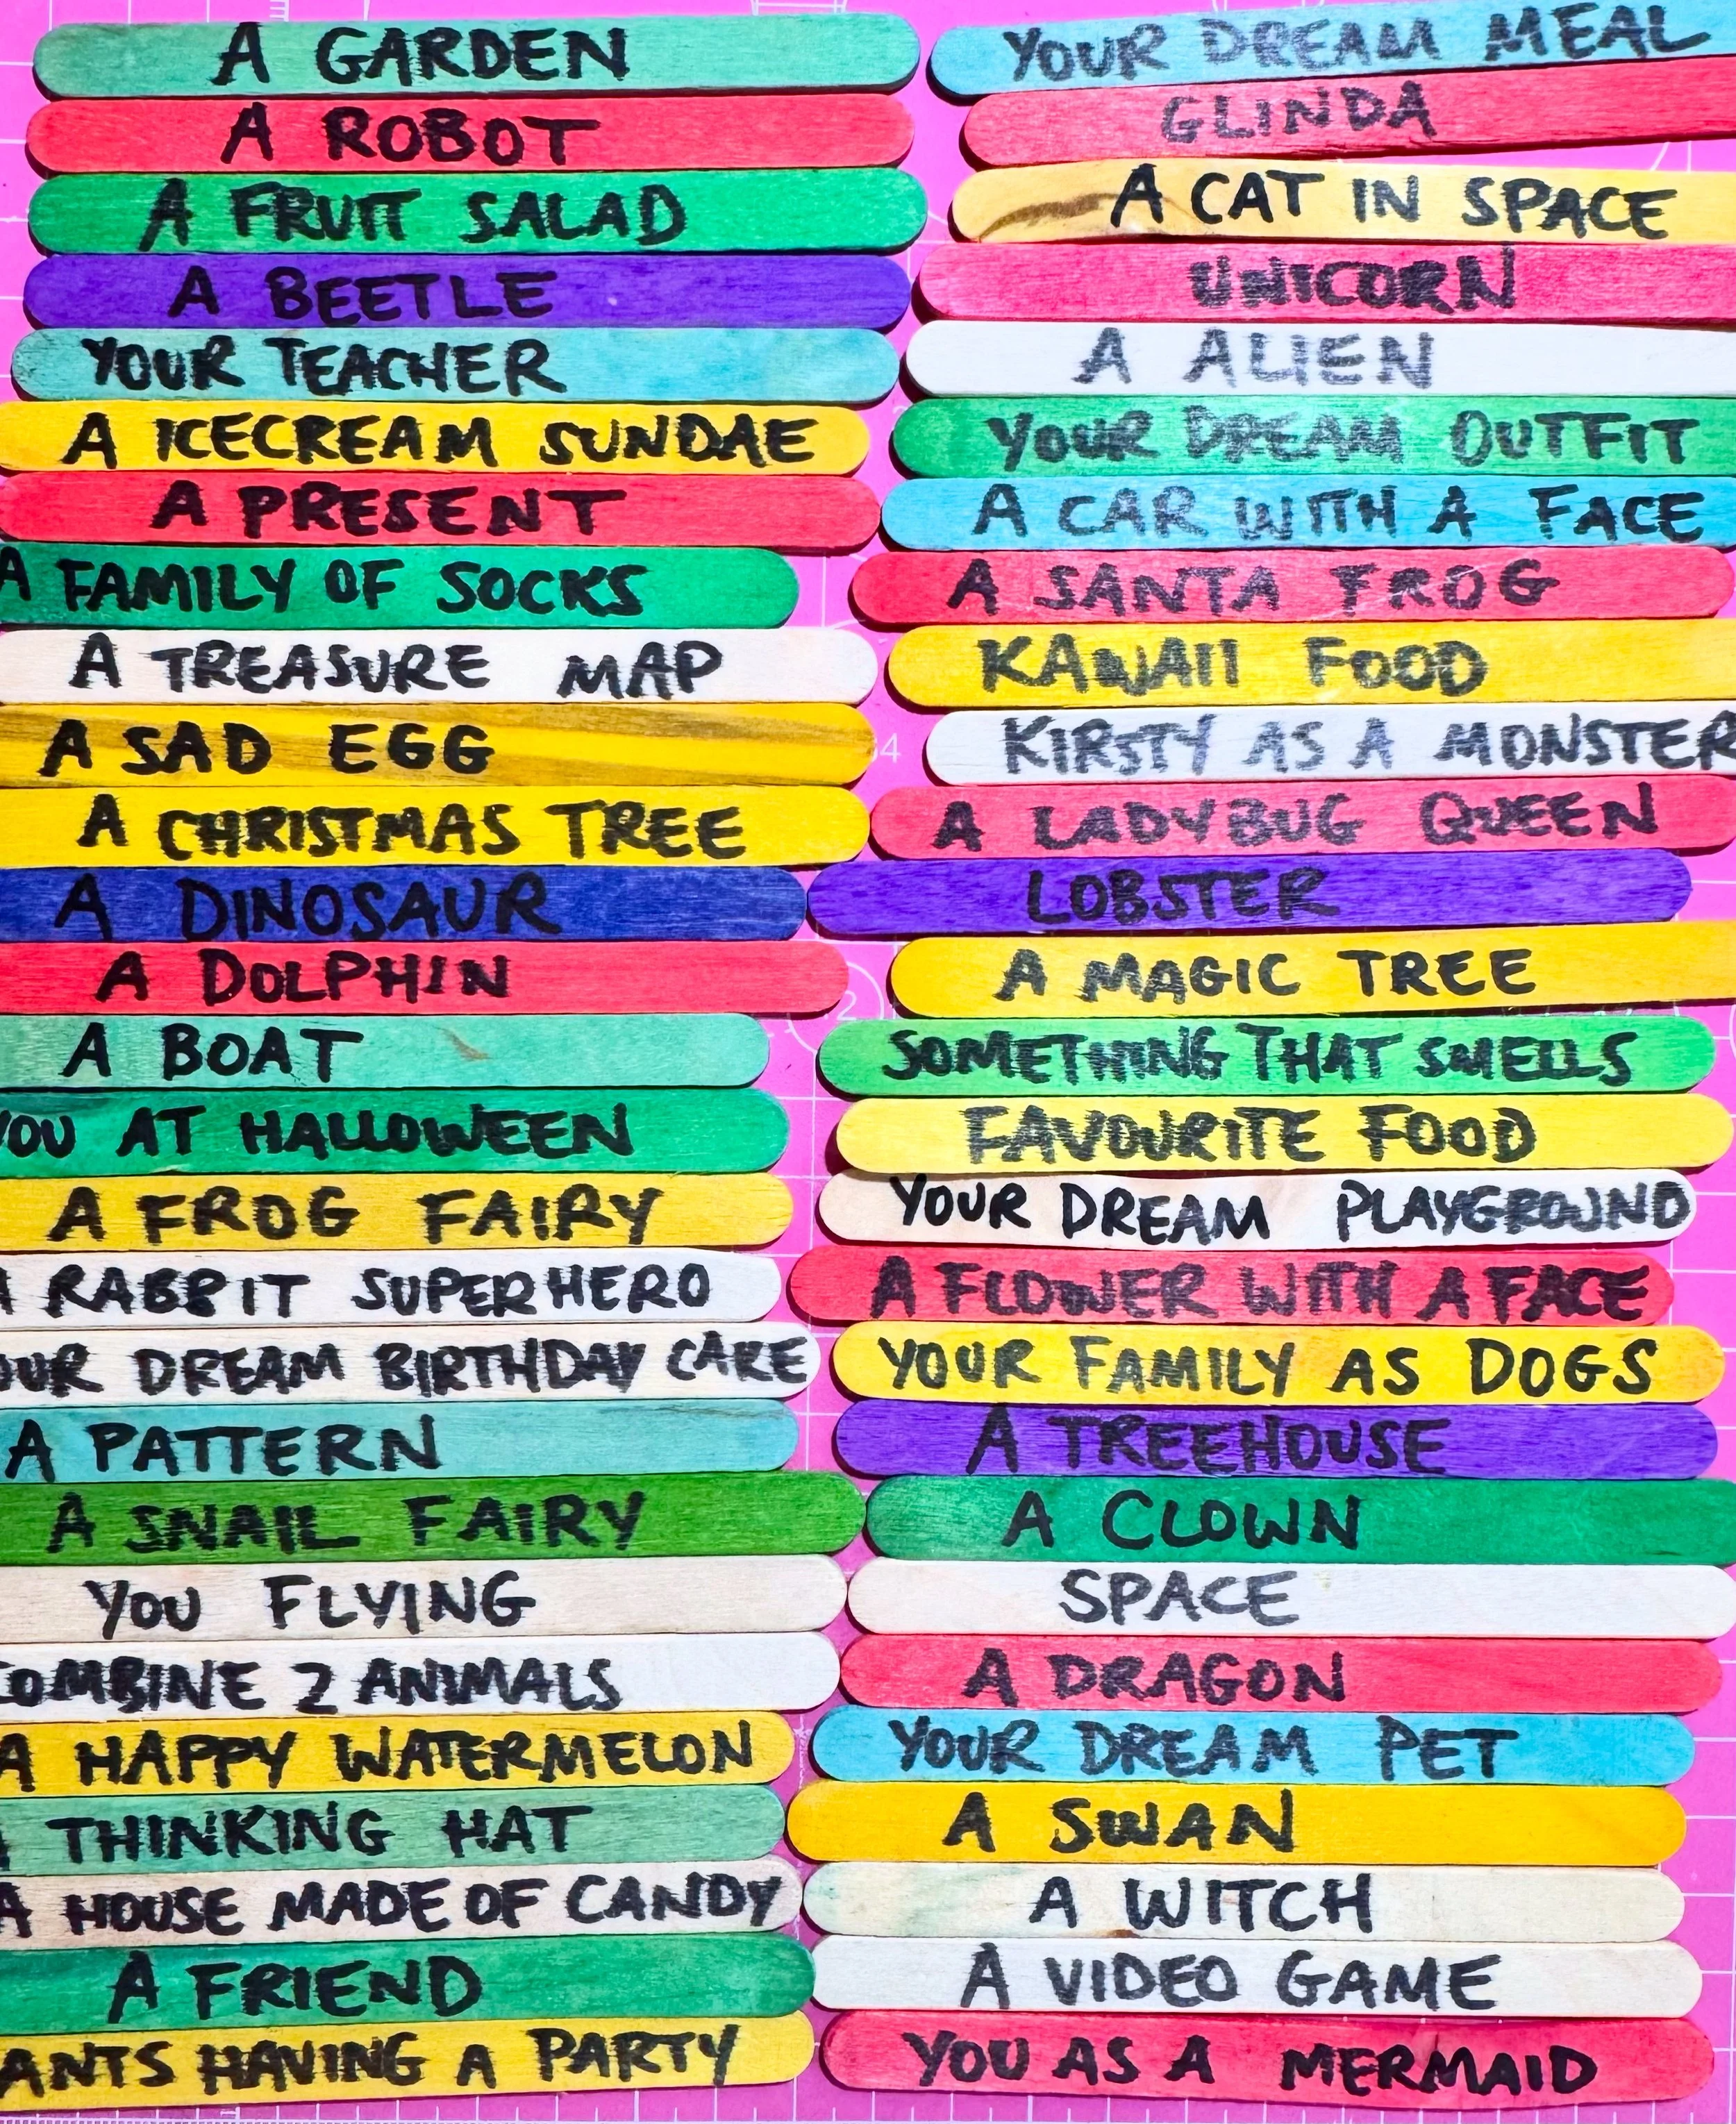 A GARDEN
A ROBOT
A FRUIT SALAD
A BEETLE
YOUR TEACHER
A ICECREAM SUNDAE
A PRESENT
A FAMILY OF SOCKS
A TREASURE MAP
A SAD EGG
A CHRISTMAS TREE
A DINOSAUR
A DOLPHIN
A BOAT
YOU AT HALLOWEEN
A FROG FAIRY
A RABBIT SUPERHERO
OUR DREAM BIRTHDAY CAKE
A PATTERN
A SNAIL FAIRY
YOU FLYING
COMBINE 2 ANIMALS
A HAPPY WATERMELON
A THINKING HAT
A HOUSE MADE OF CANDY
A FRIEND
ANTS HAVING A PARTY
YOUR DREAM MEAL
GLINDA
A CAT IN SPACE
UNICORN
A ALIEN
YOUR DREAM OUTFIT
A CAR WITH A FACE
A SANTA FROG
KAWAII FOOD
KIRSTY AS A MONSTER
A LADYBUG QUEEN
LOBSTER
A MAGIC TREE
SOMETHING THAT SMELLS
FAVOURITE FOOD
YOUR DREAM PLAYGROUND
A FLOWER WITH A FACE
YOUR FAMILY AS DOGS
A TREEHOUSE
A CLOWN
SPACE
A DRAGON
YOUR DREAM PET
A SWAN
A WITCH
A VIDEO GAME
YOU AS A MERMAID